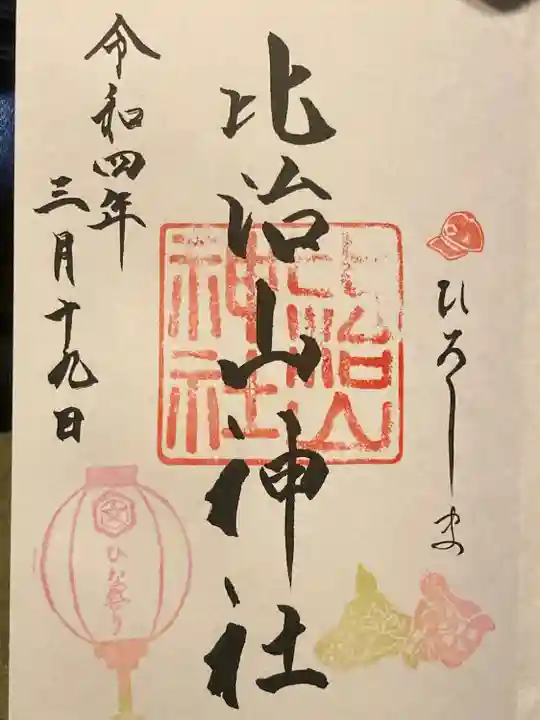 ひろしま
比治山神社
比治山
神社
令和四年
三月十九日
ひな祭り